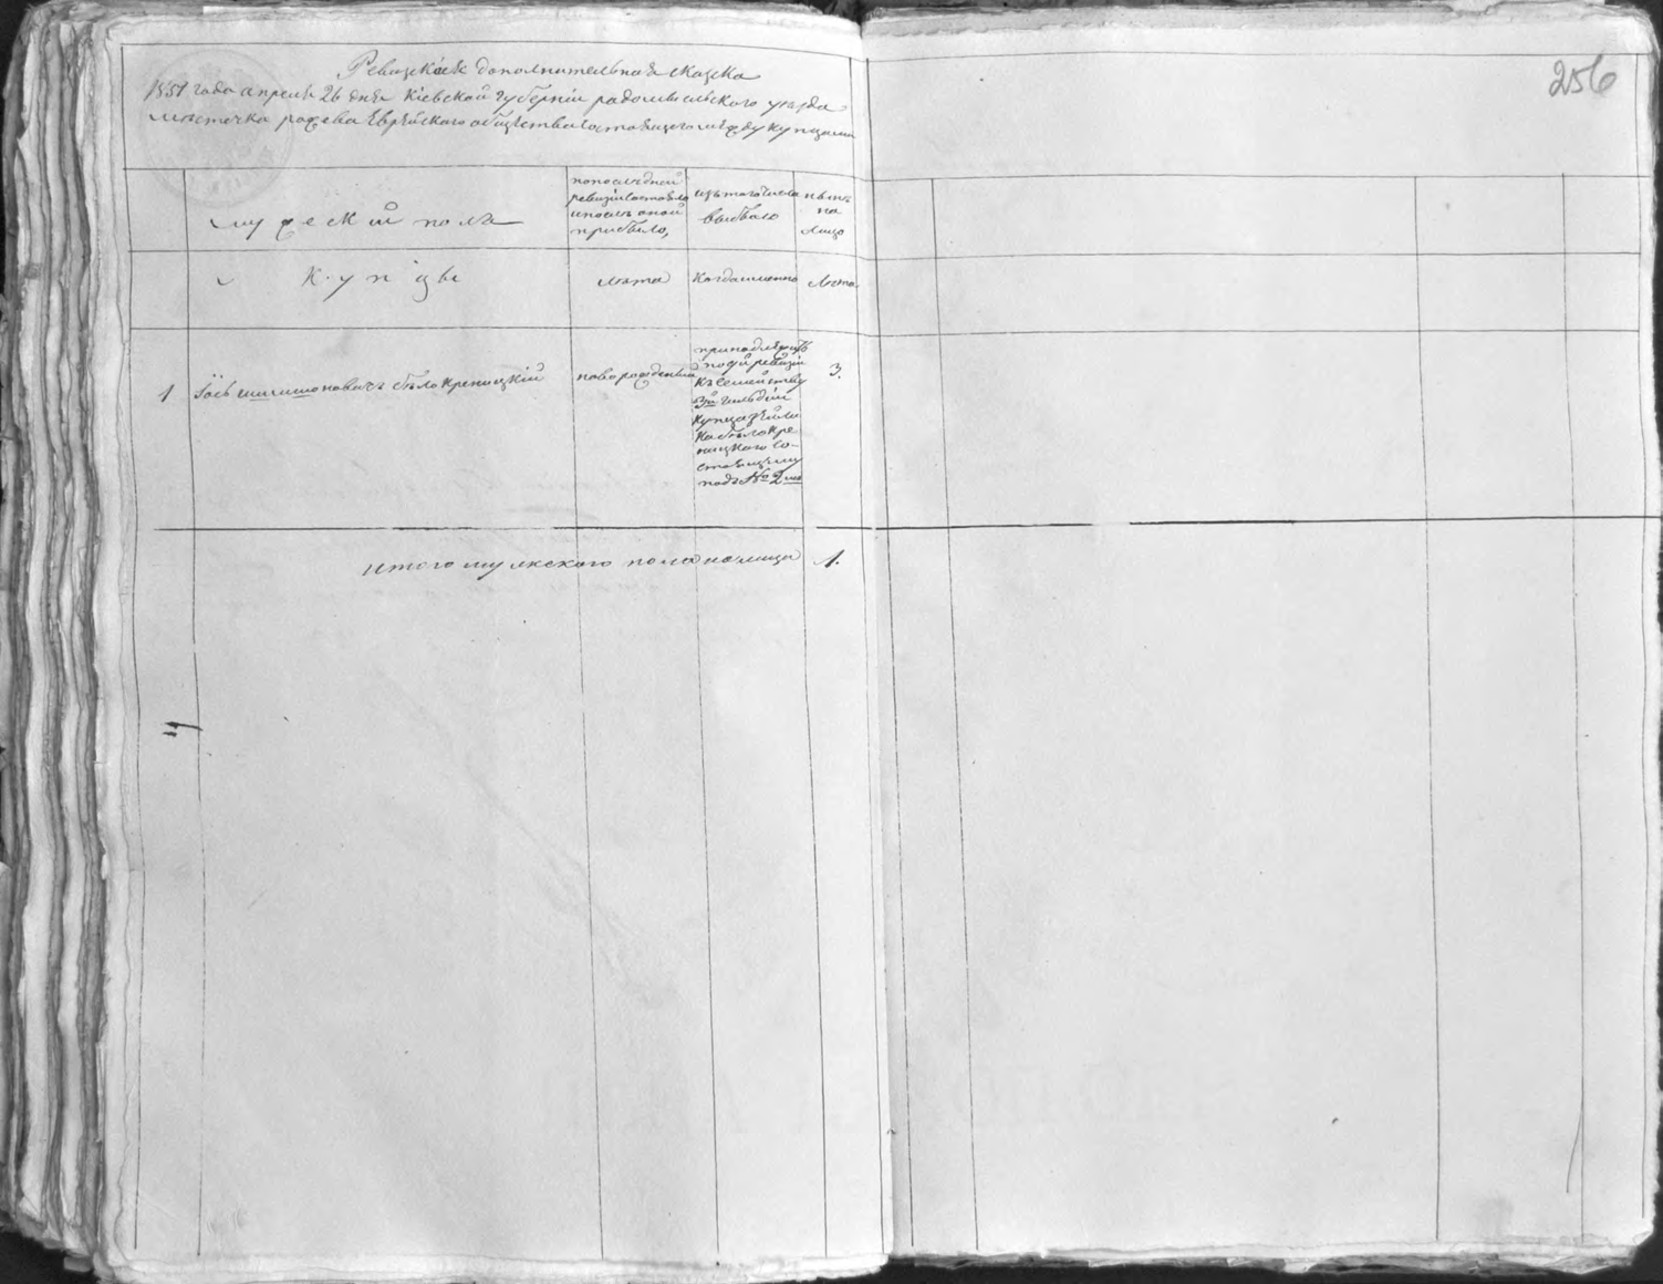 Ревизская дополнительная сказка
1851 года апреля 26 дня Кіевской губерніи радомысльского уезда
мѣстечка рожева Еврейского общества состоящего между купцами
256
мужеский полъ
попоследней
ревизіи состояло
и после оной
прибыло,
изътого числа
выбыло
ныне
на
лицо
Купцы
лѣта
Когда именно
лѣта
1
бѣлокреницкій
новорожденый
принадлежитъ
по 9й ревизіи
къ семейству
3й гильдіи
купца
бѣлокре
ницкого со-
стоящему
подъ № 2мъ
3.
итого мужского пола налицо
1.